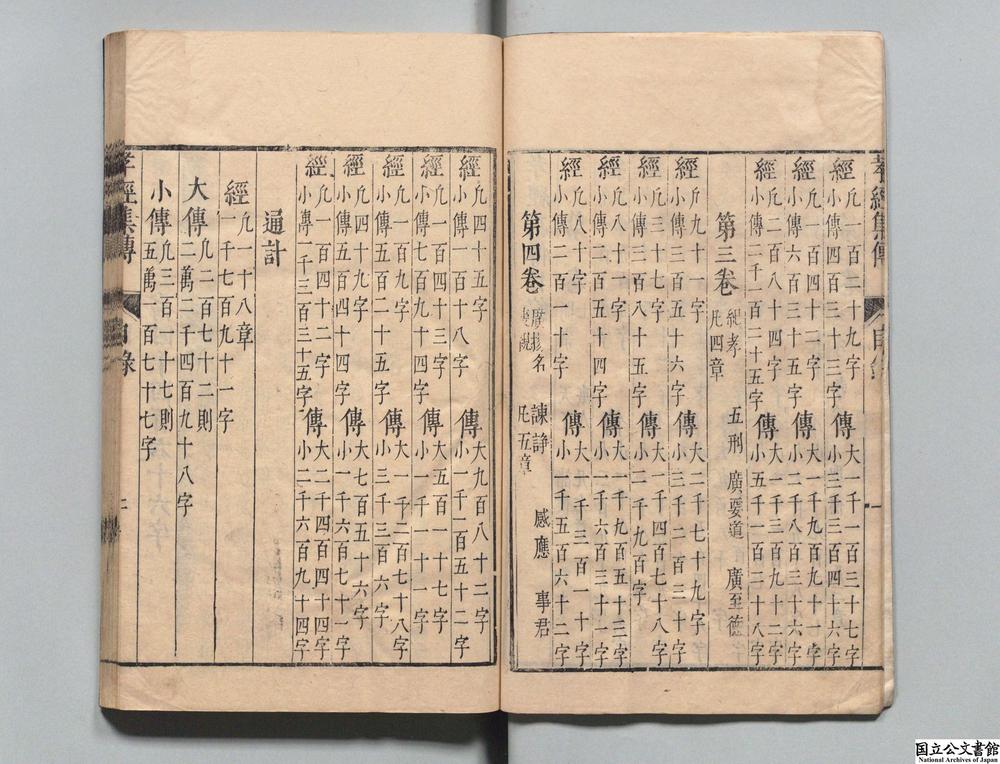 經 凡一百二十九字 傳 大一千一百三十七字
小傳一百三十三字 小三千三百四十六字
經 凡一百四十二字 傳 大一千九百九十一字
小傳六百三十五字 小二千八百三十六字
經 凡二百八十四字 傳 大一千三百九十二字
小傳二千一百二十五字 小五千一百二十八字
第三卷 紀孝 五刑 廣要道 廣至德
凡四章
經 凡九十一字 傳 大二千七十九字
小傳一百五十六字 小三千二百三十字
經 凡三十七字 傳 大一千四百七十八字
小傳三百八十五字 小二千九百字
經 凡八十一字 傳 大一千九百五十三字
小傳一百五十四字 小一千六百三十一字
經 凡八十字 傳 大一千三百一十字
小傳二百一十字 小一千五百六十二字
第四卷 廣揚名 諫諍 感應 事君
喪親 凡五章
經 凡四十五字 傳 大九百八十二字
小傳一百十八字 小一千一百五十二字
經 凡一百四十三字 傳 大五百一十七字
小傳七百九十四字 小一千一十一字
經 凡一百一字 傳 大一千二百七十八字
小傳五百二十五字 小一千三百六字
經 凡四十九字 傳 大七百五十六字
小傳五百四十四字 小一千六百七十一字
經 凡一百四十二字 傳 大二千四百四十四字
小傳一千三百三十五字 小二千六百九十四字
通計
經 凡一十八章
一千七百九十一字
大傳 凡二百七十二則
二萬二千四百九十八字
小傳 凡三百一十七則
五萬一百七十七字
孝經集傳 目錄 二
孝經集傳 目錄 一
国立公文書館
National Archives of Japan